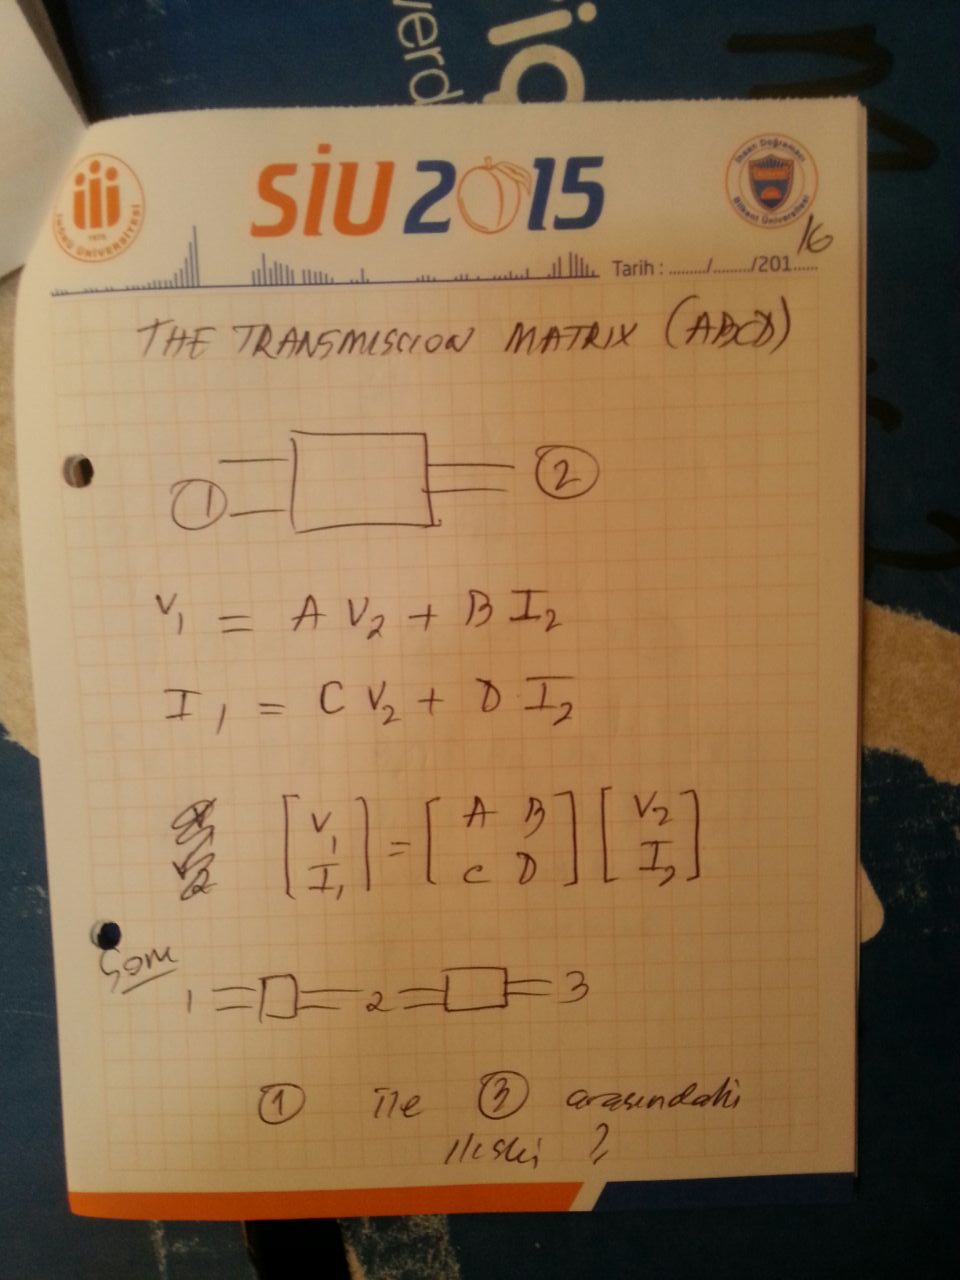 verd
SİU 2015
İNÖNÜ ÜNİVERSİTESİ
1975
İhsan Doğramacı
Bilkent Üniversitesi
Tarih : ......../......../201...... /6
THE TRANSMISSION MATRIX (ABCD)
1 2
V1 = A V2 + B I2
I1 = C V2 + D I2
[V1 I1] = [A B C D] [V2 I2]
Soru
1 2 3
1 ile 3 arasındaki
ilişki ?